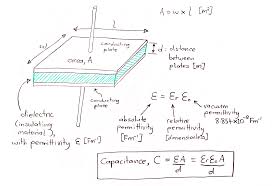 l
A = w x l [m²]
w
conducting plate
area, A
d = distance between plates [m]
dielectric (insulating material), with permittivity ε [Fm⁻¹]
conducting plate
ε = εr ε₀
absolute permittivity [Fm⁻¹]
relative permittivity [dimensionless]
vacuum permittivity 8.854x10⁻¹² Fm⁻¹
Capacitance, C = εA/d = εrε₀A/d